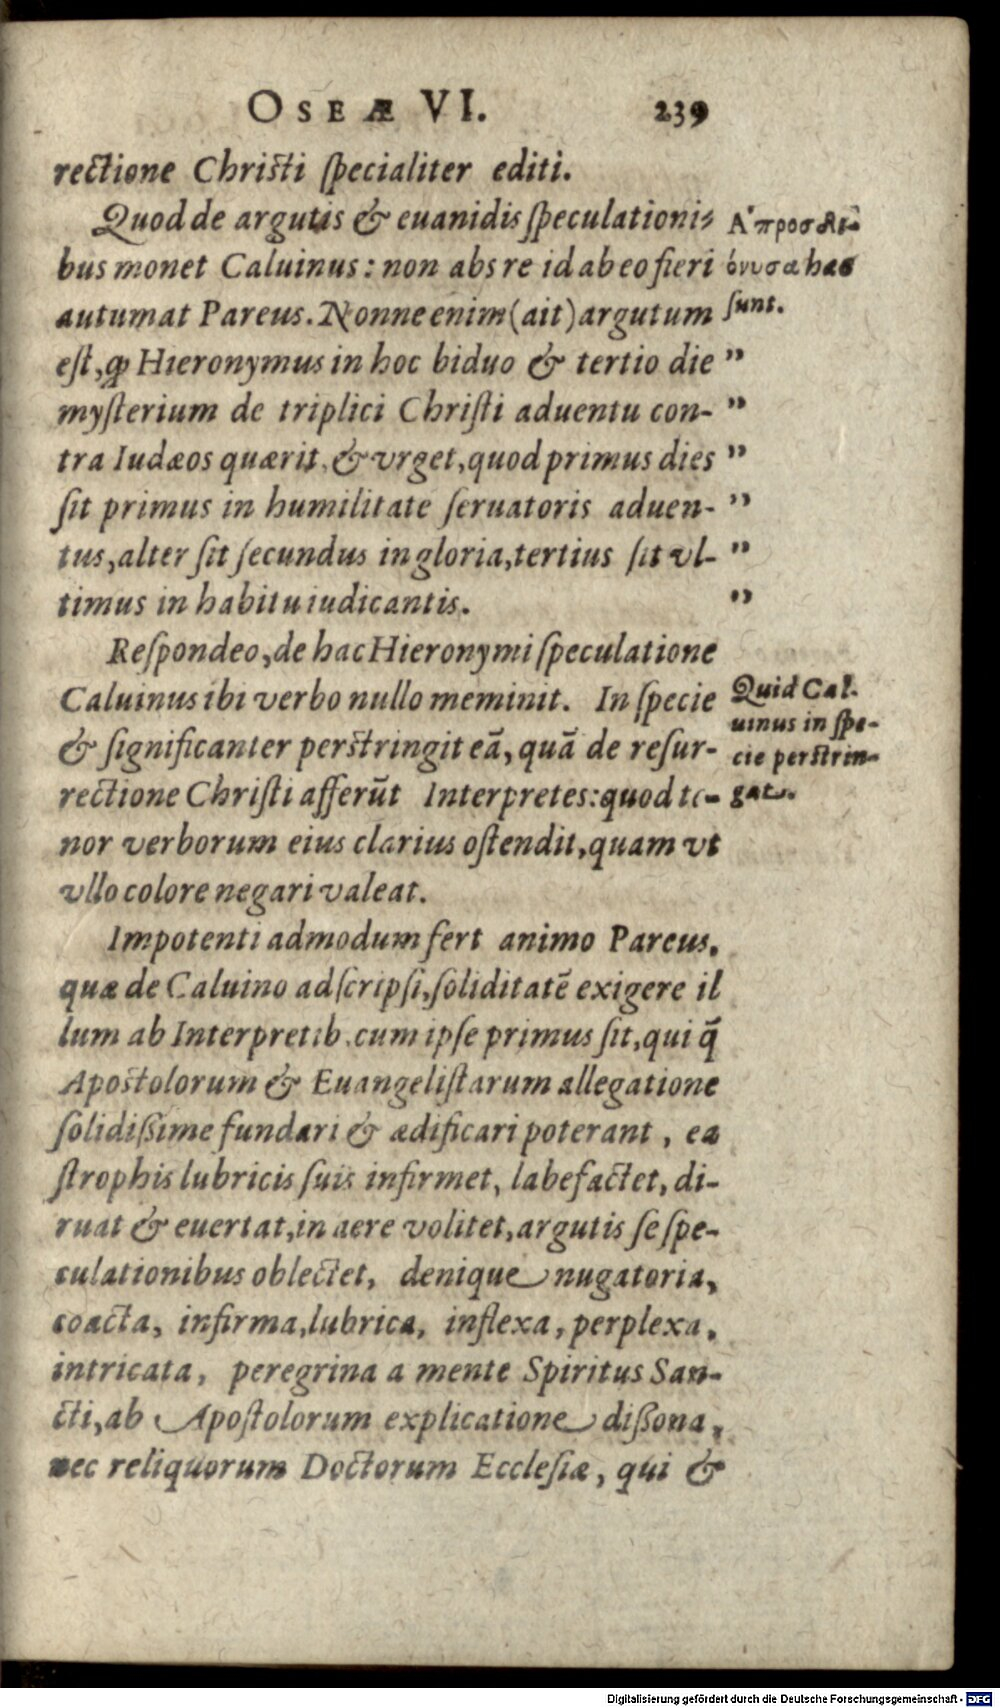 OSEÆ VI. 239
rectione Christi ſpecialiter editi.
Quod de argutis & euanidis ſpeculationi-
bus monet Caluinus: non abs re id ab eo fieri
autumat Pareus. Nonne enim (ait) argutum
eſt, ꝙ Hieronymus in hoc biduo & tertio die
myſterium de triplici Chriſti aduentu con-
tra Iudæos quærit, & vrget, quod primus dies
ſit primus in humilitate ſeruatoris aduen-
tus, alter ſit ſecundus in gloria, tertius ſit vl-
timus in habitu iudicantis.
Ἀπροσδι-
όνυσα hæc
ſunt.
"
"
"
"
"
"
Reſpondeo, de hac Hieronymi ſpeculatione
Caluinus ibi verbo nullo meminit. In ſpecie
& ſignificanter perstringit eā, quā de reſur-
rectione Chriſti afferūt Interpretes: quod te-
nor verborum eius clarius oſtendit, quam vt
vllo colore negari valeat.
Quid Cal-
uinus in ſpe-
cie perstrin-
gat.
Impotenti admodum fert animo Pareus,
quæ de Caluino adſcripſi, ſoliditatē exigere il
lum ab Interpretib. cum ipſe primus ſit, qui q̄
Apostolorum & Euangeliſtarum allegatione
ſolidißime fundari & ædificari poterant, ea
ſtrophis lubricis ſuis infirmet, labefactet, di-
ruat & euertat, in aere volitet, argutis ſe ſpe-
culationibus oblectet, denique nugatoria,
coacta, infirma, lubrica, inflexa, perplexa,
intricata, peregrina a mente Spiritus San-
cti, ab Apoſtolorum explicatione dißona,
nec reliquorum Doctorum Eccleſiæ, qui &
Digitalisierung gefördert durch die Deutsche Forschungsgemeinschaft - DFG